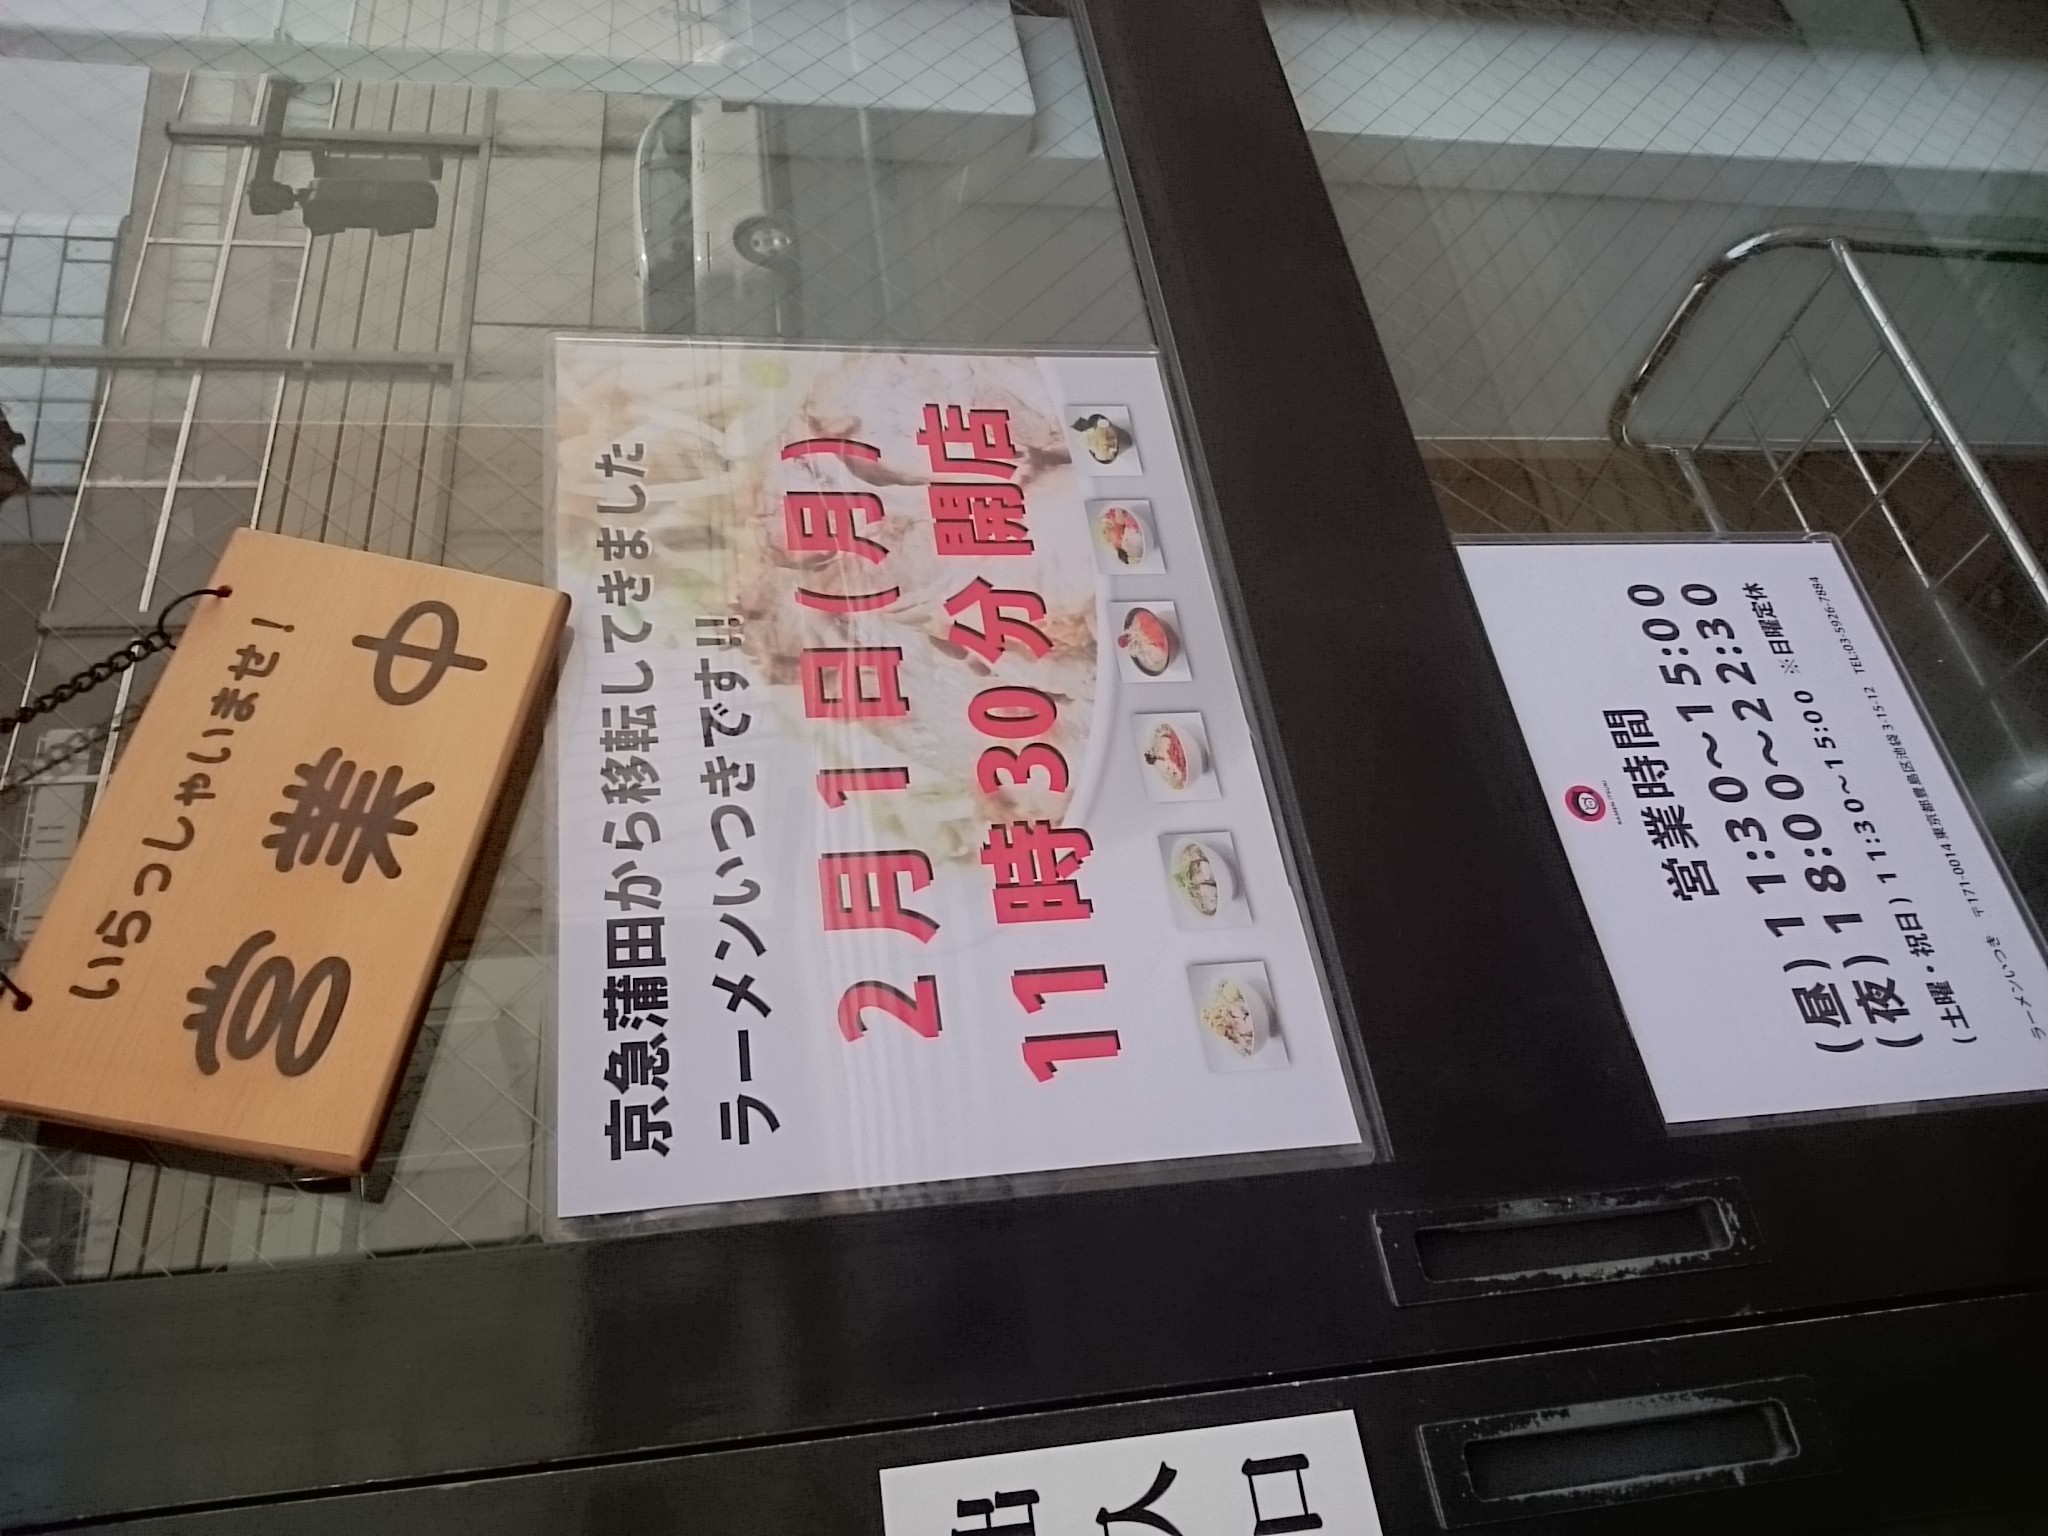 いらっしゃいませ!
営業中
京急蒲田から移転してきました
ラーメンいつきです!!
2月1日(月)
11時30分開店
RAMEN ITSUKI
営業時間
(昼)11:30~15:00
(夜)18:00~22:30
(土曜・祝日)11:30~15:00 ※日曜定休
ラーメンいつき 〒171-0014 東京都豊島区池袋3-15-12 TEL:03-5926-7884
出入口